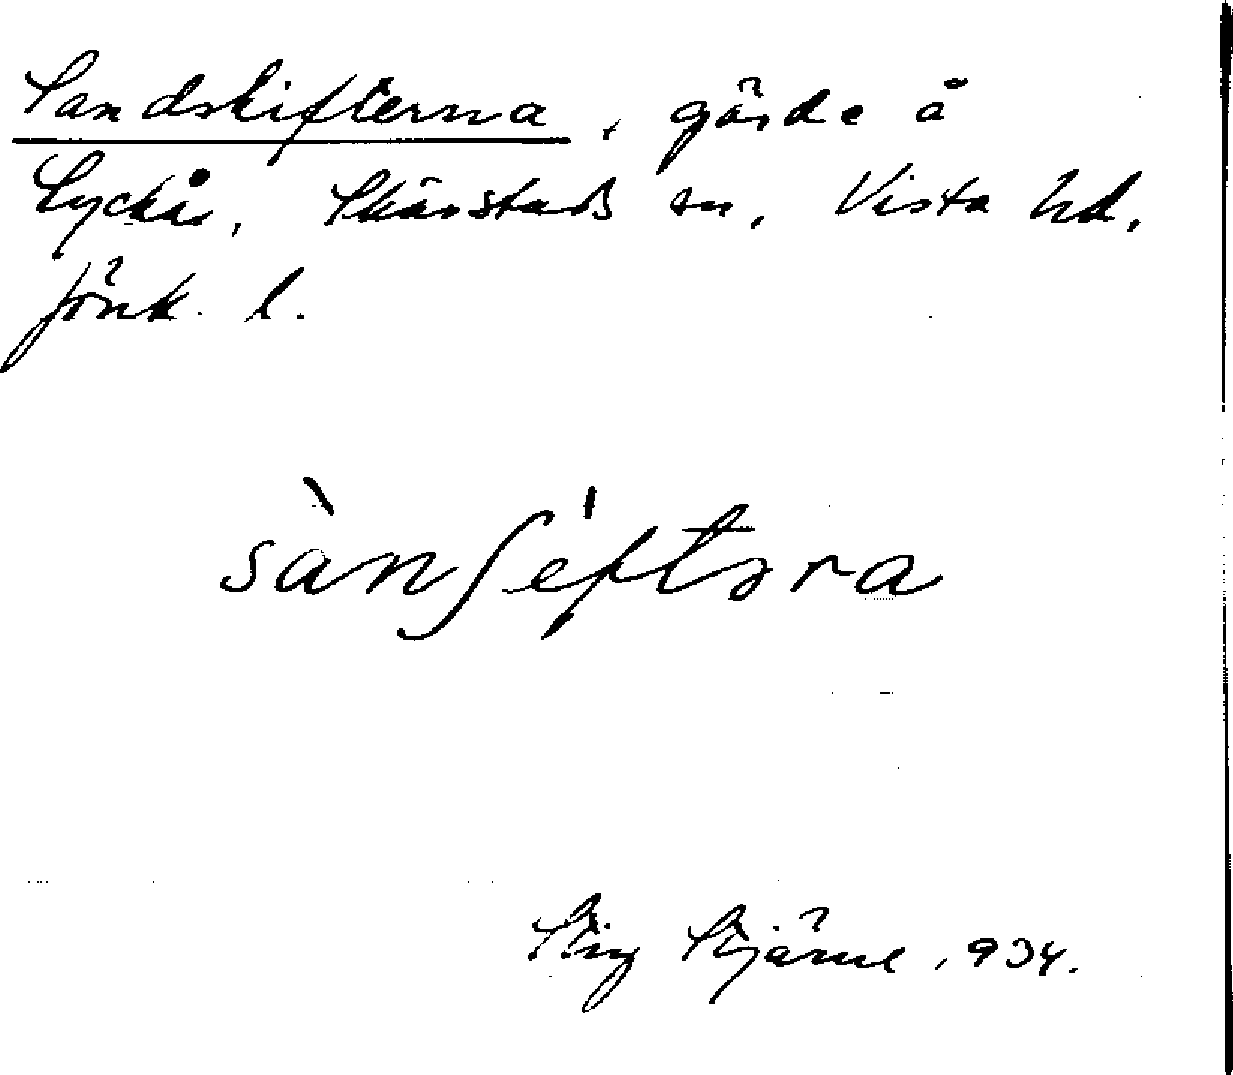 Sandskifterna, gärde å
Lyckås, Skärstads sn, Vista hd,
Jönk. l.
sànʃéftəra
Stig Stjärne, 934.